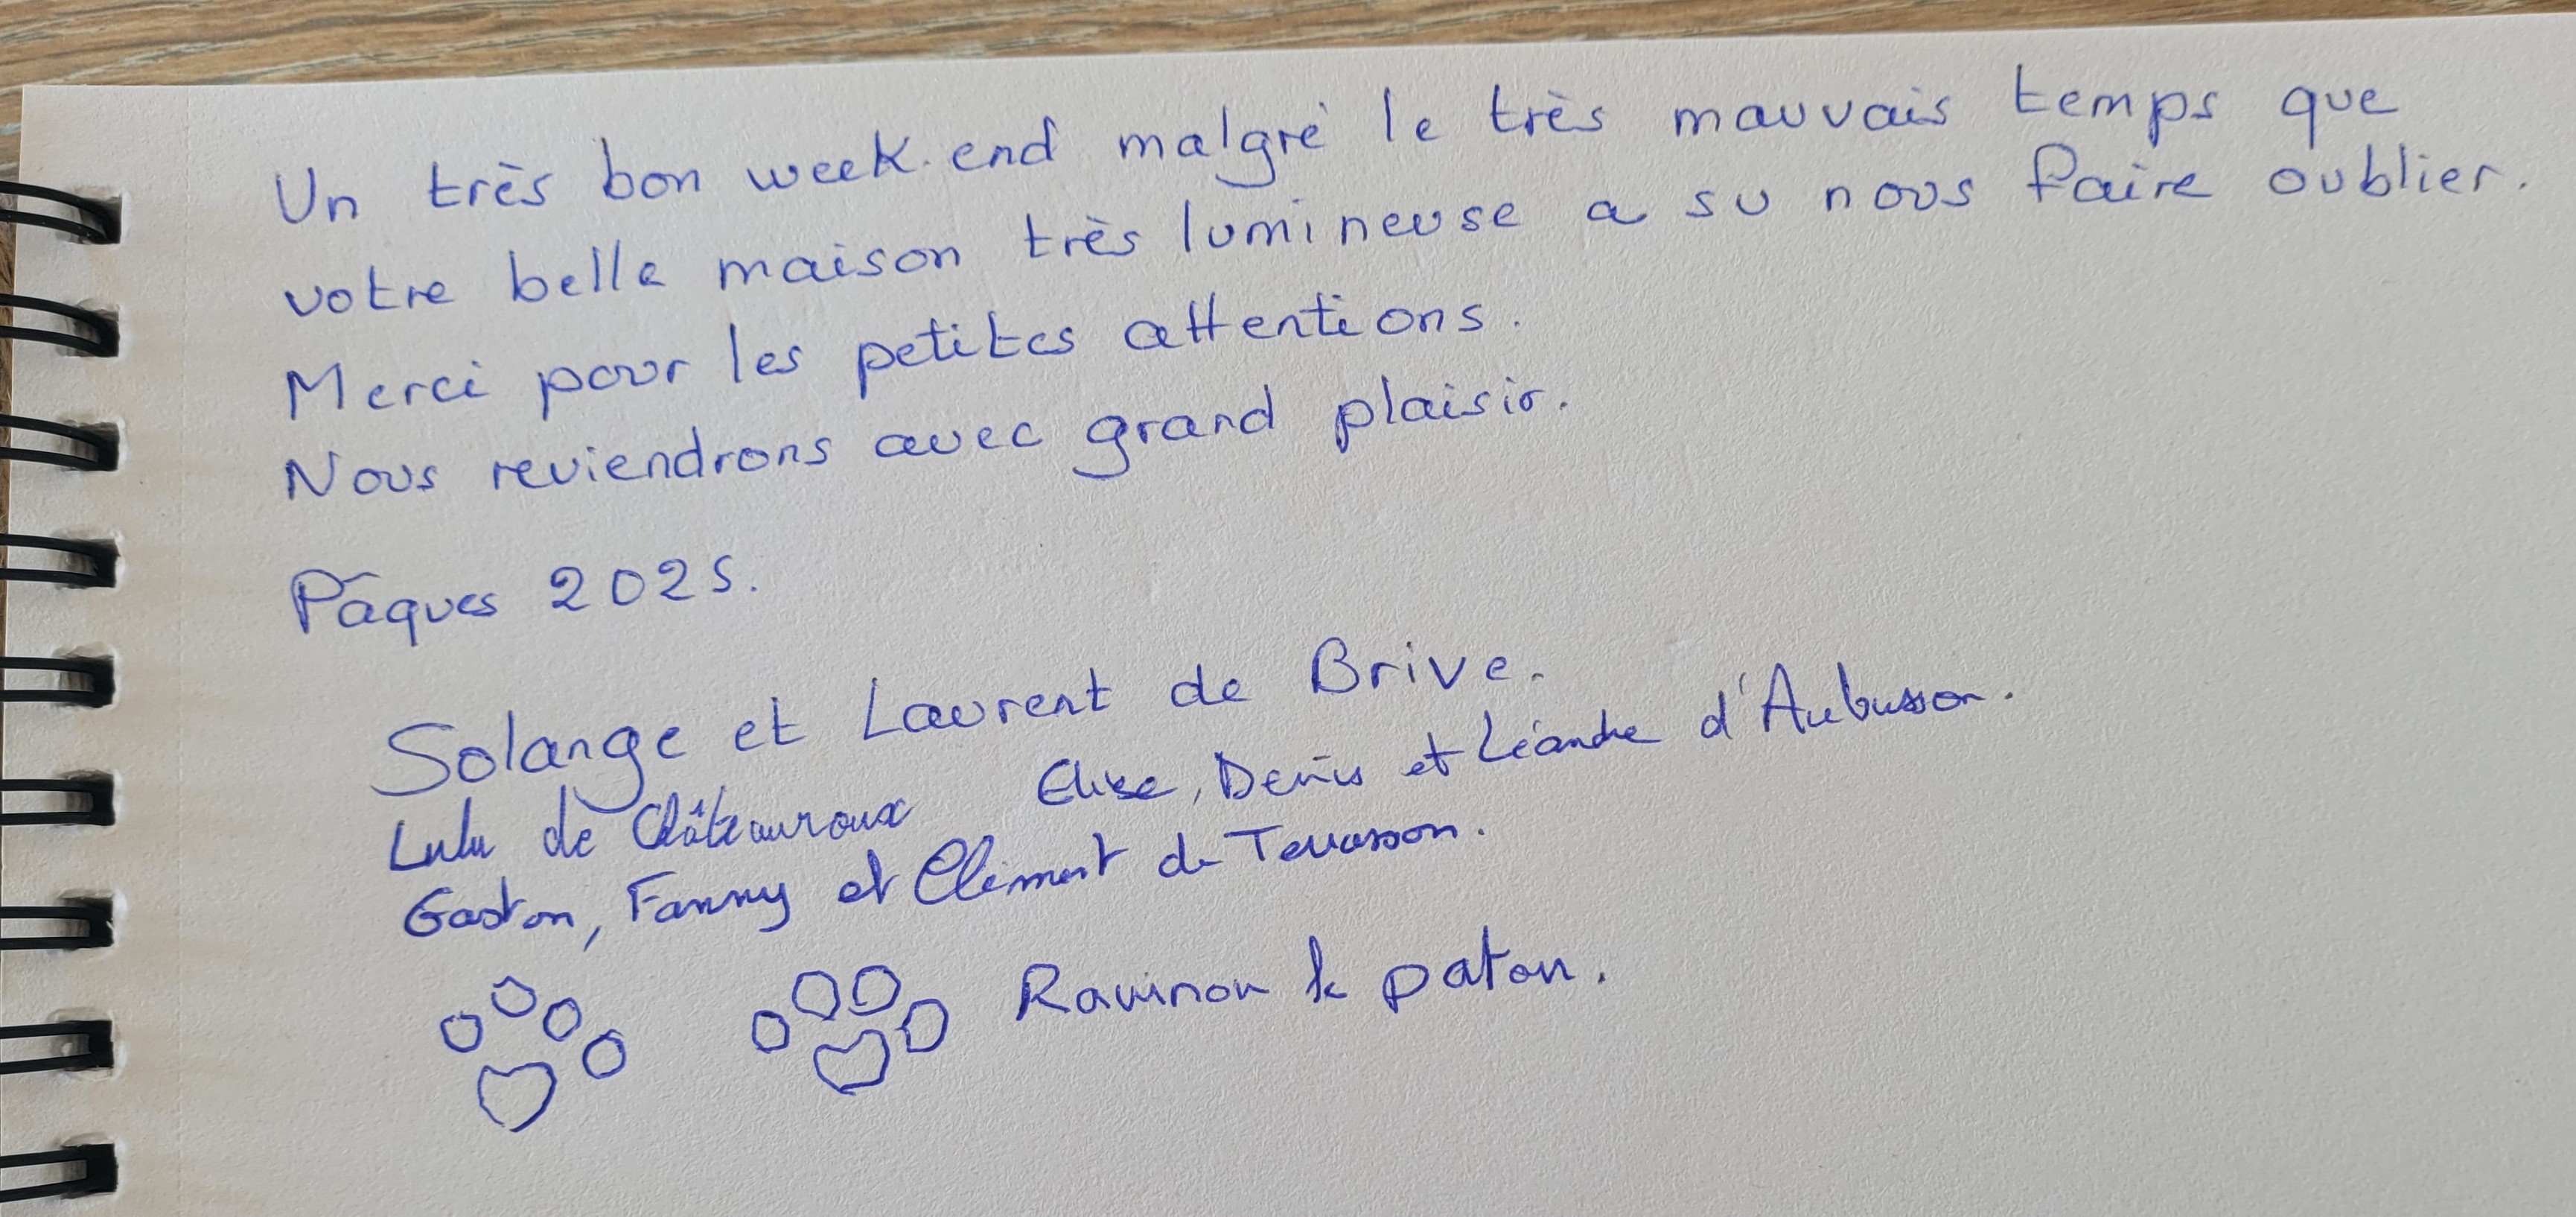 Un très bon week-end malgré le très mauvais temps que
votre belle maison très lumineuse a su nous faire oublier.
Merci pour les petites attentions.
Nous reviendrons avec grand plaisir.
Pâques 2025.
Solange et Laurent de Brive.
Lulu de Châteauroux Elise, Denis et Léandre d'Aubusson.
Gaston, Fanny et Clément de Terrasson.
le patou.